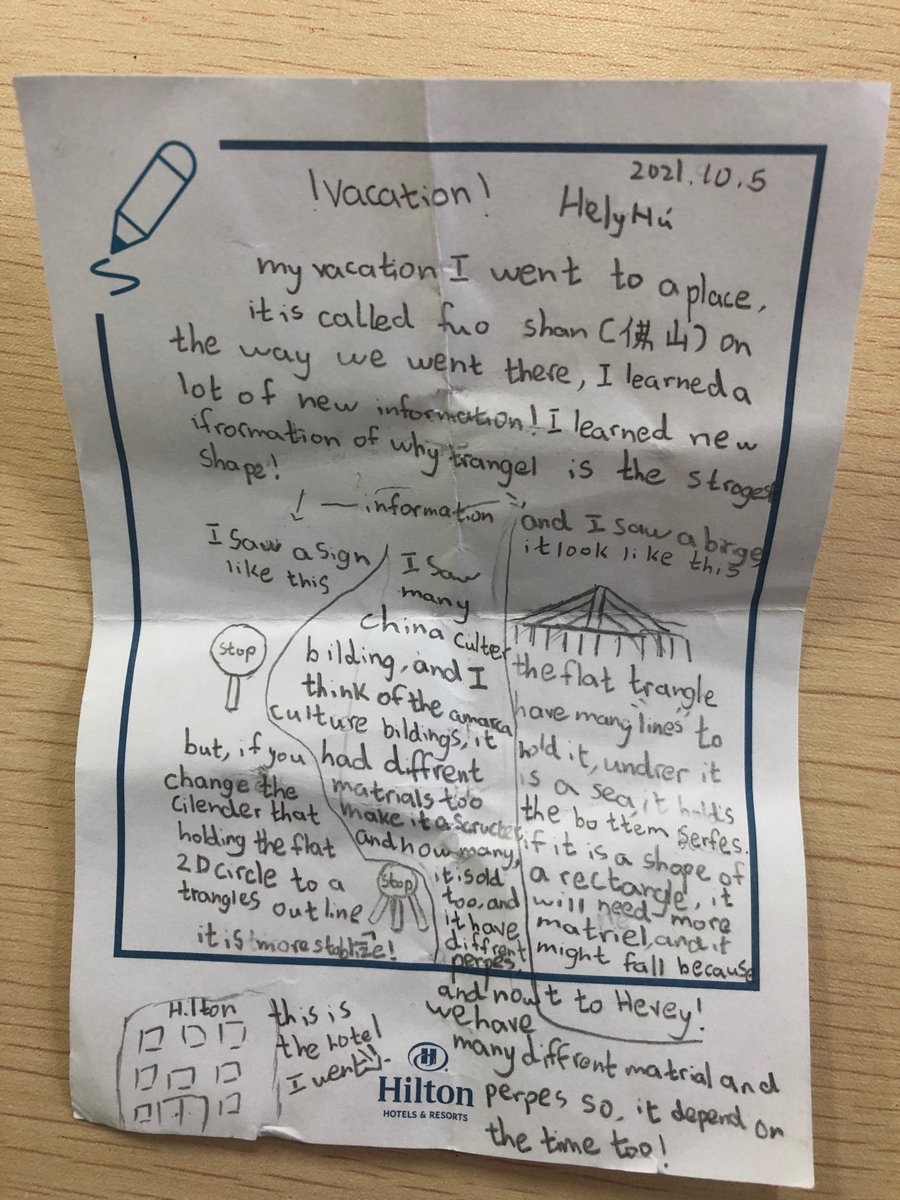 2021.10.5
!vacation!
HelyHú
my vacation I went to a place,
it is called fuo shan (佛山) on
the way we went there, I learned a
lot of new information! I learned new
ifrormation of why trangel is the strogest
shape!
information
I saw a sign
like this
stop
but, if you
change the
cilender that
holding the flat
2D circle to a
trangles outline
it is more stablize!
stop
I saw
many
china culter
bilding, and I
think of the amarca
culture bildings, it
had diffrent
matrials too
make it a scructer
and how many,
it is old
too, and
it have
diffrent
perpes.
and now
we have
many diffrent matrial and
perpes so, it depend on
the time too!
and I saw a birge
it look like this
the flat trangle
have many lines to
hold it, undrer it
is a sea, it holds
the bottem serfes.
if it is a shape of
a rectangle, it
will need more
matriel, and it
might fall because
it to Hevey!
Hilton
this is
the hotel
I went!
H
Hilton
HOTELS & RESORTS